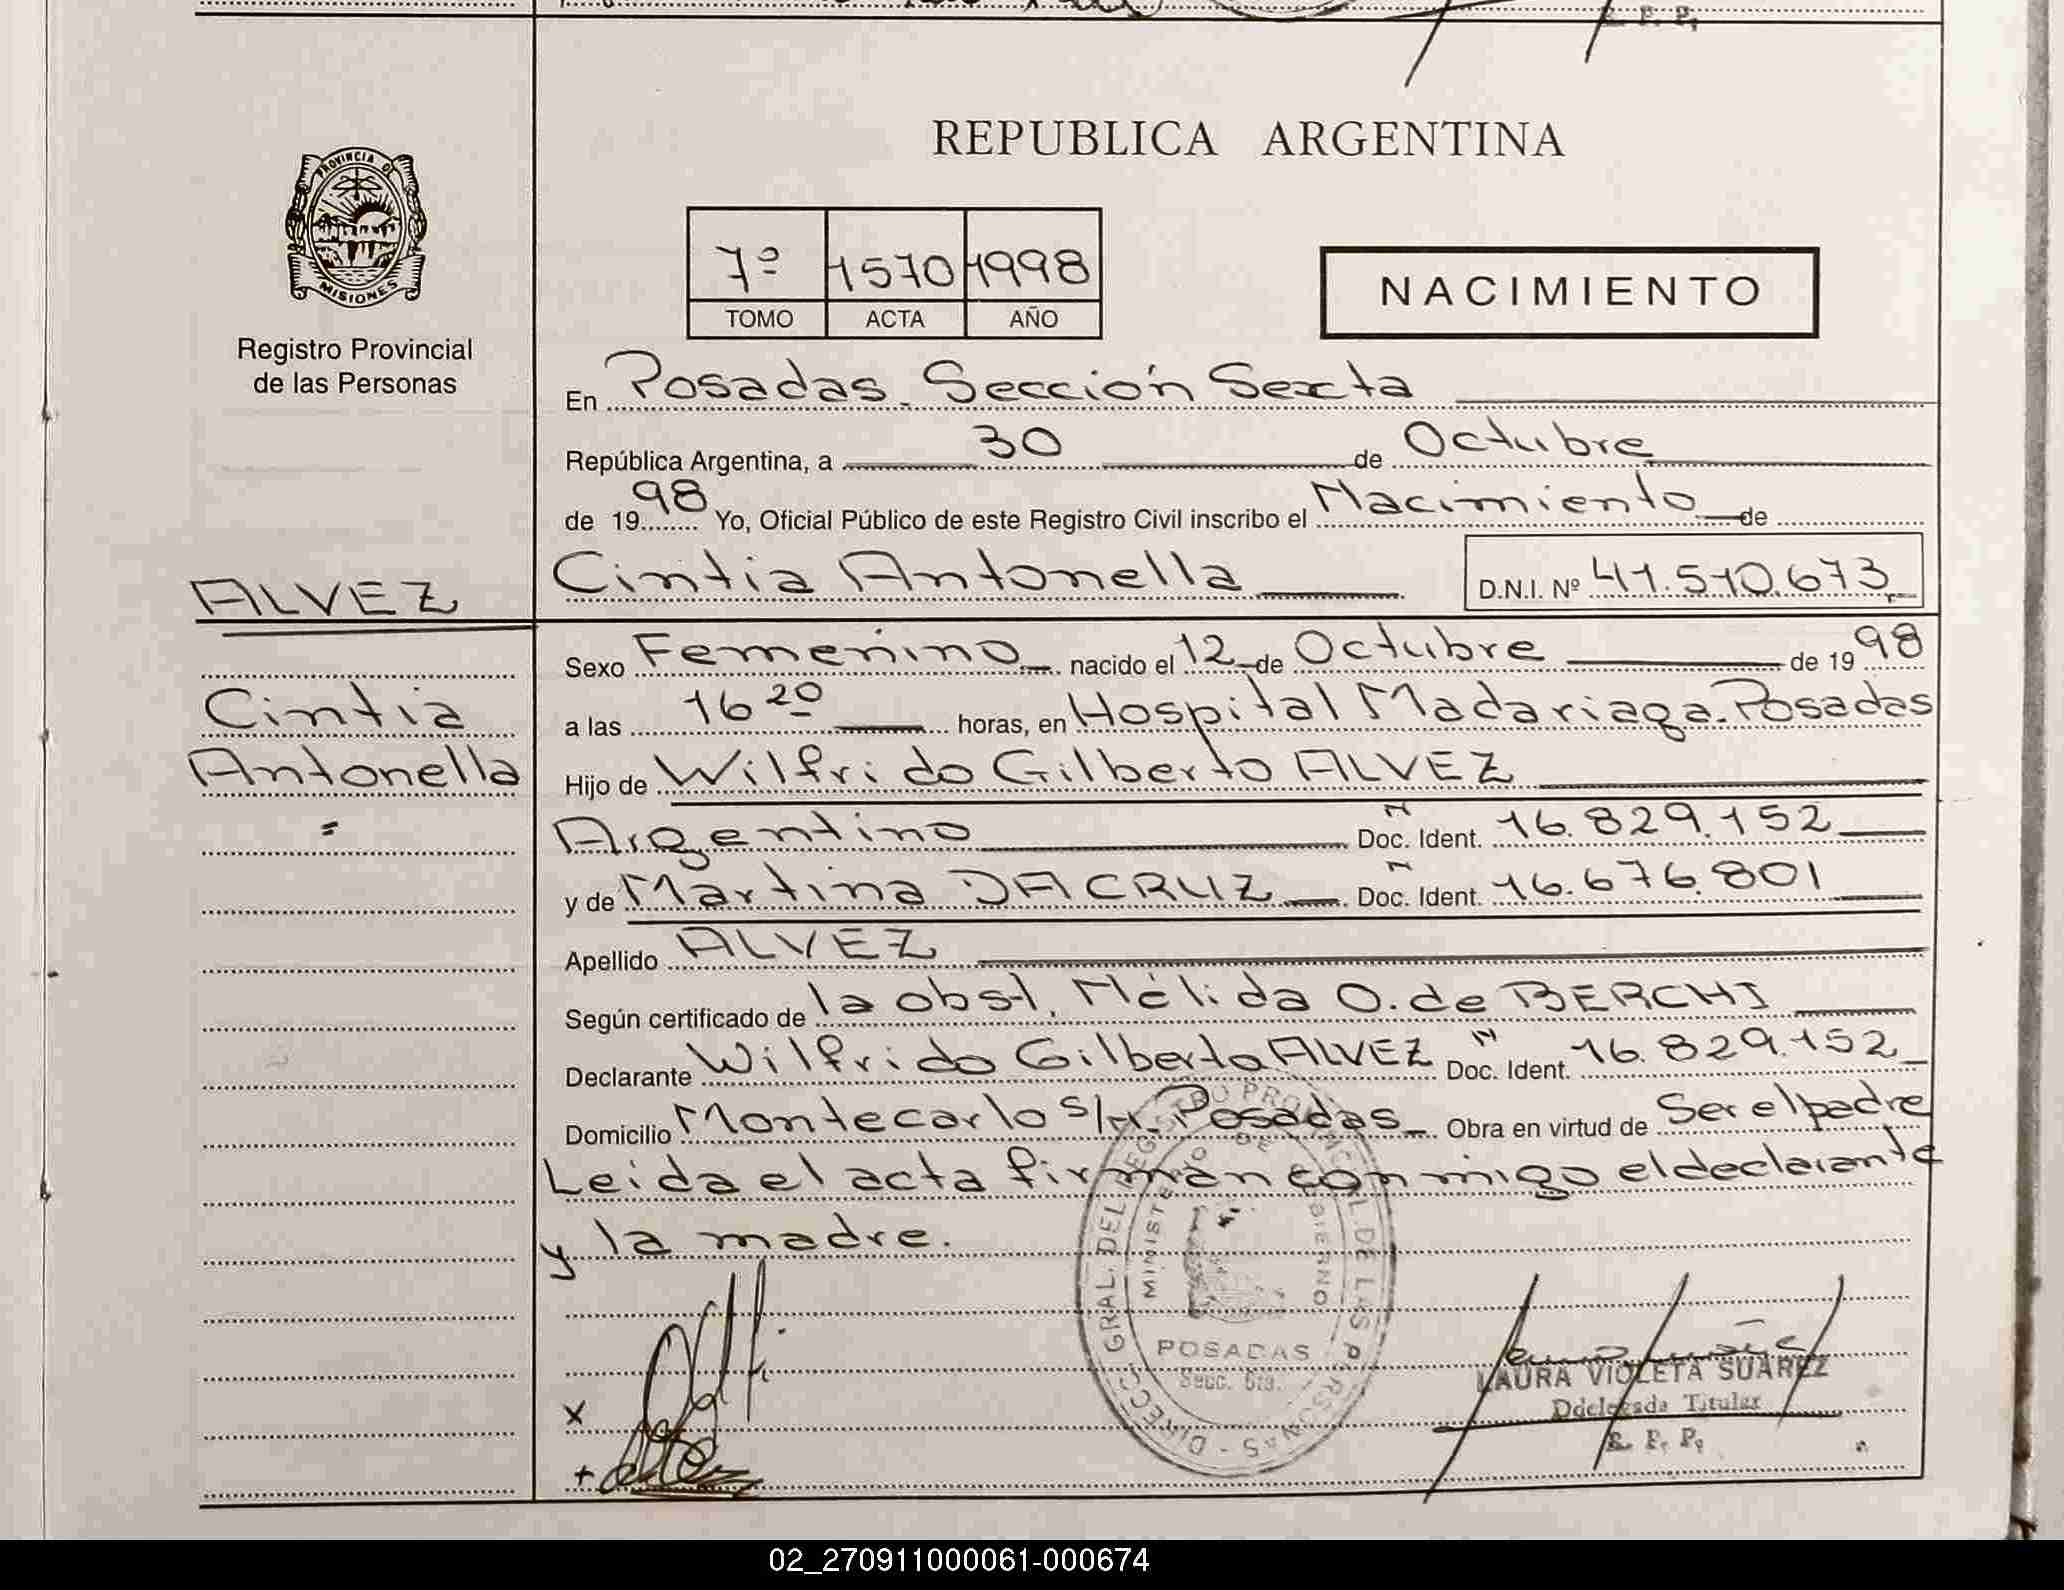 R. P. P.
PROVINCIA DE
MISIONES
Registro Provincial
de las Personas
REPUBLICA ARGENTINA
7º 1570 1998
TOMO ACTA AÑO
NACIMIENTO
En Posadas. Sección Sexta
República Argentina, a 30 de Octubre
de 1998 Yo, Oficial Público de este Registro Civil inscribo el Nacimiento de
ALVEZ
Cintia Antonella D.N.I. Nº 41.510.673
Sexo Femenino nacido el 12 de Octubre de 1998
Cintia
a las 16 20 horas, en Hospital Madariaga. Posadas
Antonella
Hijo de Wilfrido Gilberto ALVEZ
Argentino Doc. Ident. N 16.829.152
y de Martina DA CRUZ Doc. Ident. N 16.676.801
Apellido ALVEZ
Según certificado de la obst. Nélida O. de BERCHI
Declarante Wilfrido Gilberto ALVEZ Doc. Ident. N 16.829.152
Domicilio Montecarlo s/n. Posadas Obra en virtud de Ser el padre
Leida el acta firman conmigo el declarante
y la madre.
DIRECC. GRAL. DEL REGISTRO PROVINCIAL DE LAS PERSONAS
MINISTERIO DE GOBIERNO
POSADAS
Secc. 6ta.
X
+
LAURA VIOLETA SUAREZ
Ddelegada Titular
R. P. P.
02_270911000061-000674